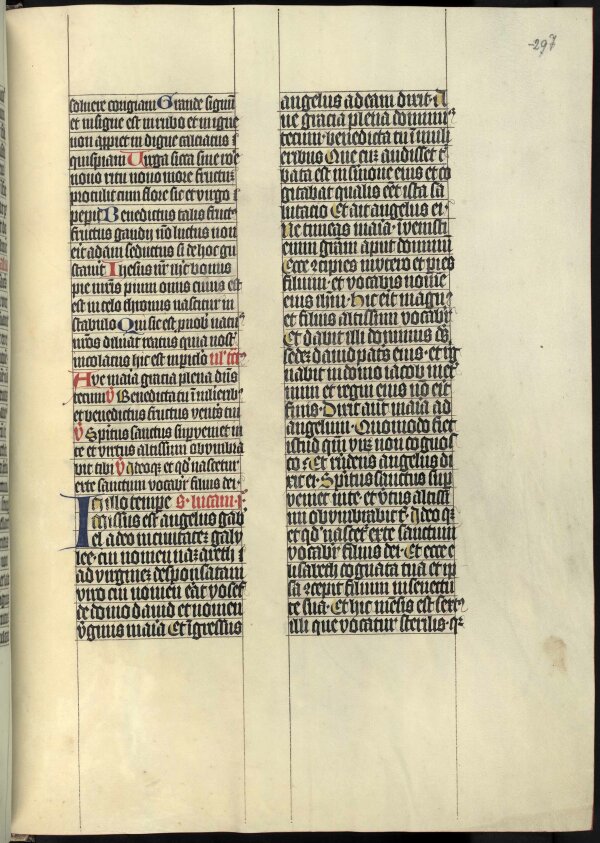 -297
soluere corrigiam Grande signū
et insigne est in rubo et in igne
non appiet indigne calciatus
quisquam Uirga sicca sine rore
nouo ritu nouo more fructum
protulit cum flore sic et uirgo
pepit Benedictus talis fruct
fructus gaudij nō luctus non
erit adam seductus si de hoc gu
stauit Jhesus nr̄ ihc̄ bonus
pie mr̄is pium onus cuius est
in celo thronus nascitur in
stabulo Qui sic est p nob natus
nr̄os deleat reatus quia nost
incolatus hic est in piclo
Aue maria gracia plena dn̄s
tecum v̄ Benedicta tu ī mulierib
et benedictus fructus ventris tui
v̄ Spiritus sanctus supueniet in
te et virtus altissimi obumbra
bit tibi v̄ Ideoq et qd nascetur
ex te sanctum vocabr filius dei
In illo tempe s. lucam
Missus est angelus gab
iel a deo in ciuitatem galy
lee cui nomen nazareth
ad virginem desponsatam
viro cui nomen erat yosef
de domo dauid et nomen
virginis maria Et ingressus
angelus ad eam dixit A
ue gracia plena dominus
tecum benedicta tu in muli
eribus Que cum audisset t
bata est in sermone eius et co
gitabat qualis eēt ista sa
lutacio Et ait angelus ei
Ne timeas maria inuenisti
enim gram aput dominum
Ecce cōcipies in vtero et paries
filium et vocabis nomen
eius ihm̄ Hic erit magn
et filius altissimi vocabr
Et dabit illi dominus
sedem dauid patris eius et reg
nabit in domo iacob in et
num et regni eius nō erit
finis Dixit aut maria ad
angelum Quomodo fiet
istud qm̄ virum non cognos
co Et rn̄dens angelus di
xit ei Spiritus sanctus sup
ueniet in te et virtus altissi
mi obumbrabit t Ideoq
et qd nascet ex te sanctum
vocabr filius dei Et ecce e
lisabeth cognata tua et ip
sa cōcepit filium in senectu
te sua Et hic mēsis est sext
illi que vocatur sterilis q